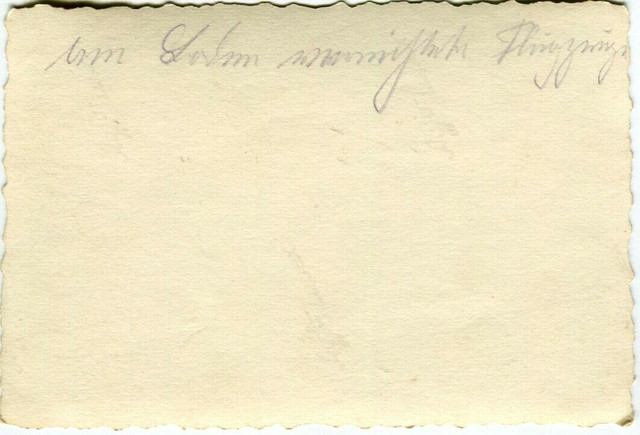 am Boden vernichtete Flugzeuge